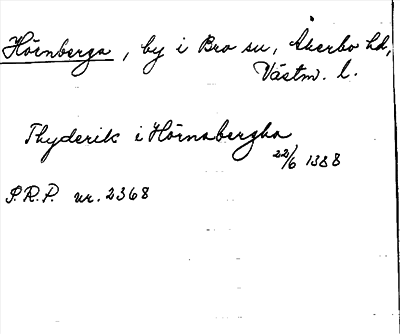 Hörnberga, by i Bro sn, Åkerbo hd,
Västm. l.
Thyderik i Hörnabergha
22/6 1388
S.R.P. nr. 2368